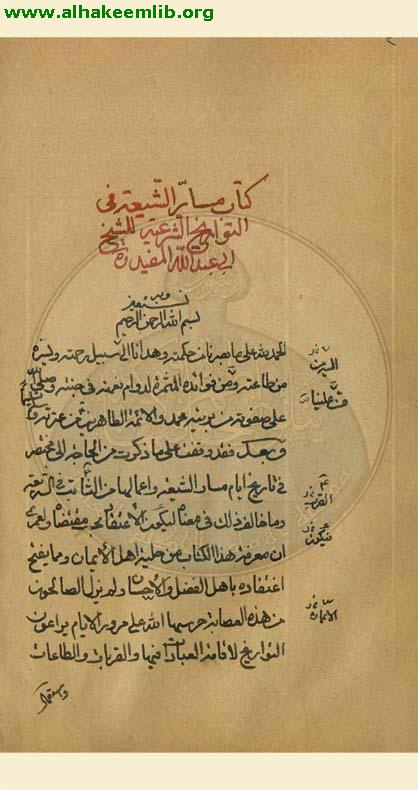 www.alhakeemlib.org
كتاب مسارّ الشّيعة في
التواريخ الشرعية للشيخ
ابي عبد الله المفيد ره
وبه نستعين
بسم الله الرحمن الرحيم
الحمد لله على ما بصرنا من حكمته وهدانا اليه سبيل رحمته ويسره
من طاعته ومن فوائده المثمرة لدوام نعمته في جنته وصلى الله
على صفوته من بريته محمد والائمة الطاهرين من عترته
وبعد فقد وقفت على ما ذكرت من الحاجة الى مختصر
في تاريخ ايام مسار الشيعة واعمالها من القرب في الشريعة
وما خالف ذلك في معناه ليكون الاعتقاد بحسب مقتضاه ولعمري
ان معرفة هذا الكتاب من حلية اهل الايمان ومما يقبح
اغفاله باهل الفضل والاحسان ولم يزل الصالحون
من هذه العصابة حرسها الله على مرور الايام يراعون
التواريخ لاقامة العبادات فيها والقربات والطاعات
الدين
من علينا
القرب
فيكون